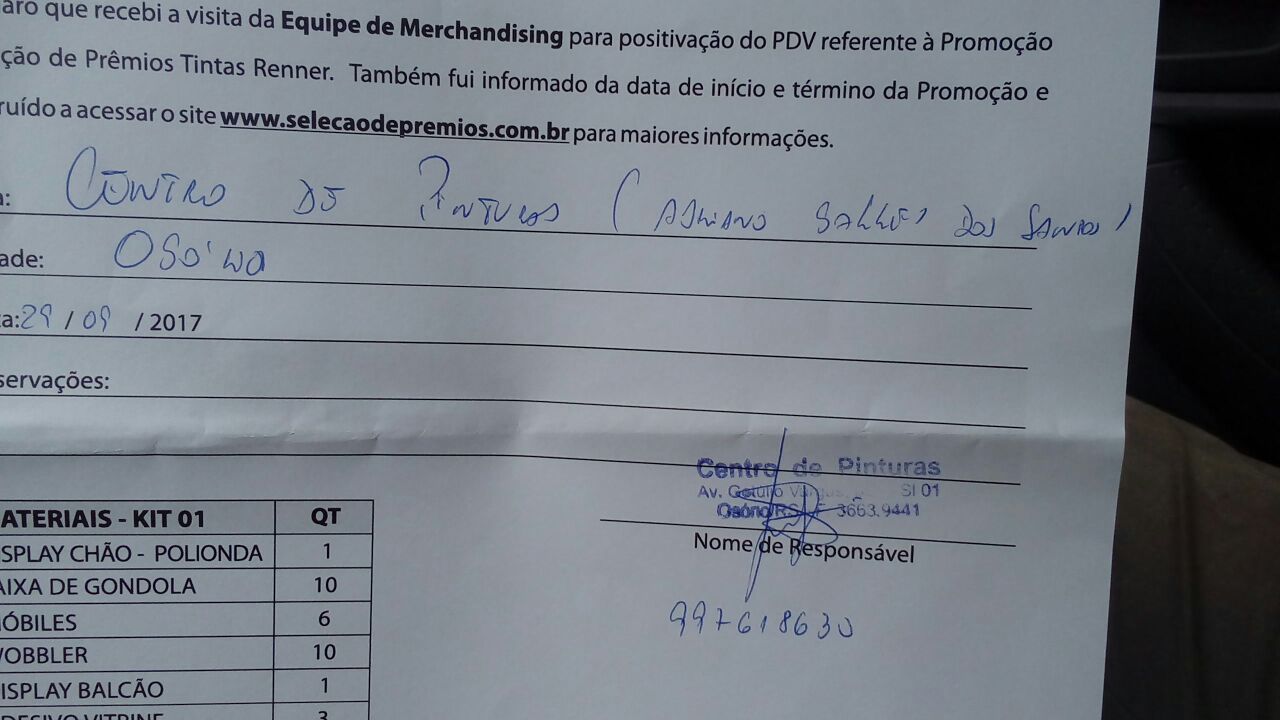 aro que recebi a visita da Equipe de Merchandising para positivação do PDV referente à Promoção
ção de Prêmios Tintas Renner. Também fui informado da data de início e término da Promoção e
ruído a acessar o site www.selecaodepremios.com.br para maiores informações.
a: Centro de Pinturas ( Adriano Salles dos Santos )
ade: Osório
ta: 29 / 09 / 2017
servações:
Centro de Pinturas
Av. Getúlio Vargas SI 01
Osório/RS 3663.9441
Nome de Responsável
997618630
ATERIAIS - KIT 01 QT
SPLAY CHÃO - POLIONDA 1
AIXA DE GONDOLA 10
ÓBILES 6
WOBBLER 10
ISPLAY BALCÃO 1
DESIVO VITRINE 3